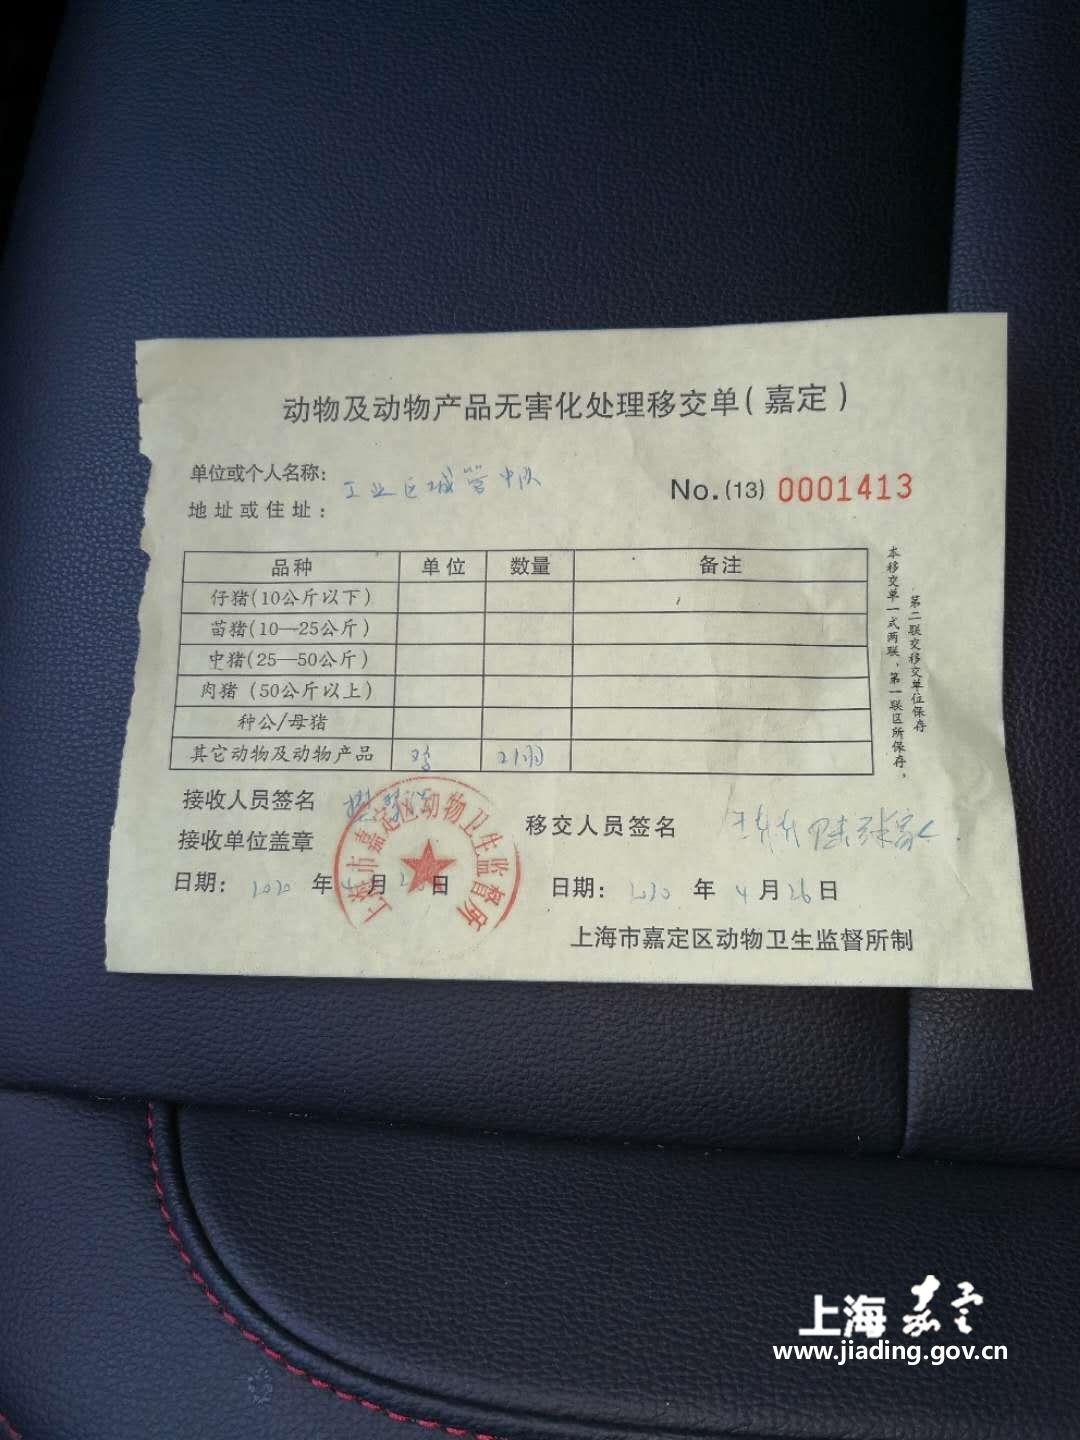 动物及动物产品无害化处理移交单(嘉定)
单位或个人名称: 工业区城管中队
地址或住址:
No.(13) 0001413
品种 单位 数量 备注
仔猪(10公斤以下)
苗猪(10—25公斤)
中猪(25—50公斤)
肉猪(50公斤以上)
种公/母猪
其它动物及动物产品 鸡 21羽
本移交单一式两联,第一联区所保存,
第二联交移交单位保存
接收人员签名
接收单位盖章
日期: 2020 年 4 月 日
上海市嘉定区动物卫生监督所
移交人员签名
日期: 2020 年 4 月 26 日
上海市嘉定区动物卫生监督所制
上海嘉定
www.jiading.gov.cn